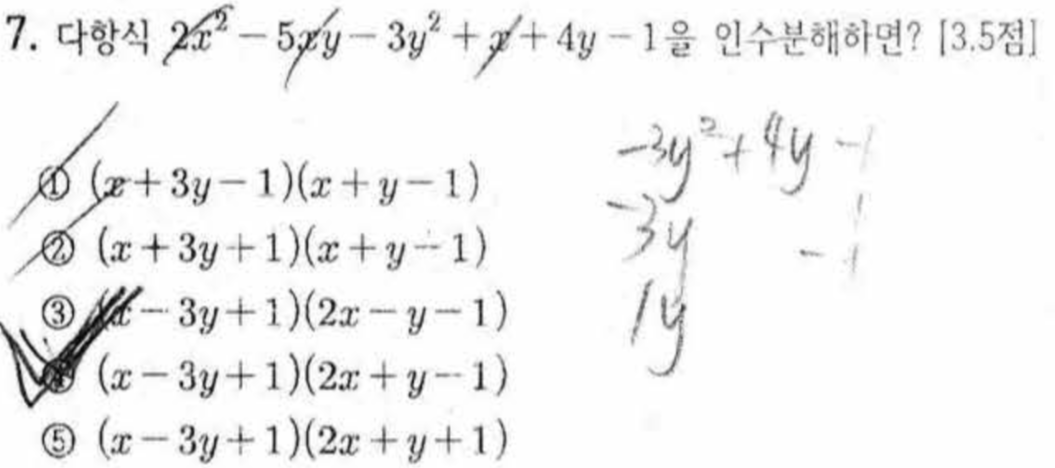 7. 다항식 2x² - 5xy - 3y² + x + 4y - 1을 인수분해하면? [3.5점]
-3y² + 4y - 1
① (x + 3y - 1)(x + y - 1)
-3y 1
② (x + 3y + 1)(x + y - 1)
-1
③ (x - 3y + 1)(2x - y - 1)
1y
④ (x - 3y + 1)(2x + y - 1)
⑤ (x - 3y + 1)(2x + y + 1)